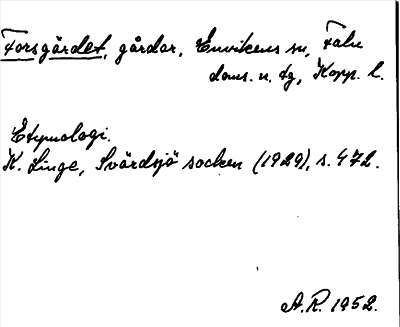 Forsgärdet, gårdar, Envikens sn, Falu
doms. n. tg, Kopp. l.
Etymologi.
K. Linge, Svärdsjö socken (1929), s. 472.
A. R. 1952.